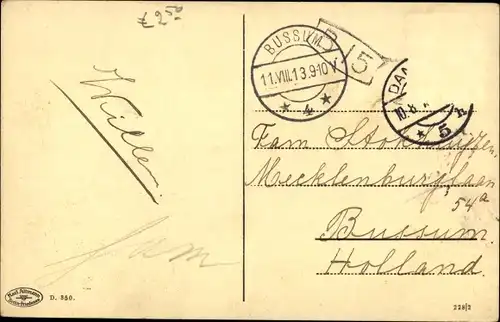 € 2.50
BUSSUM
11.VIII.13.9-10V.
* 4 *
B 5
DAM
10.8.1
* 5
Willem
Fam
Fam
Mecklenburglaan
54a
Bussum
Holland
D. 350.
228/2